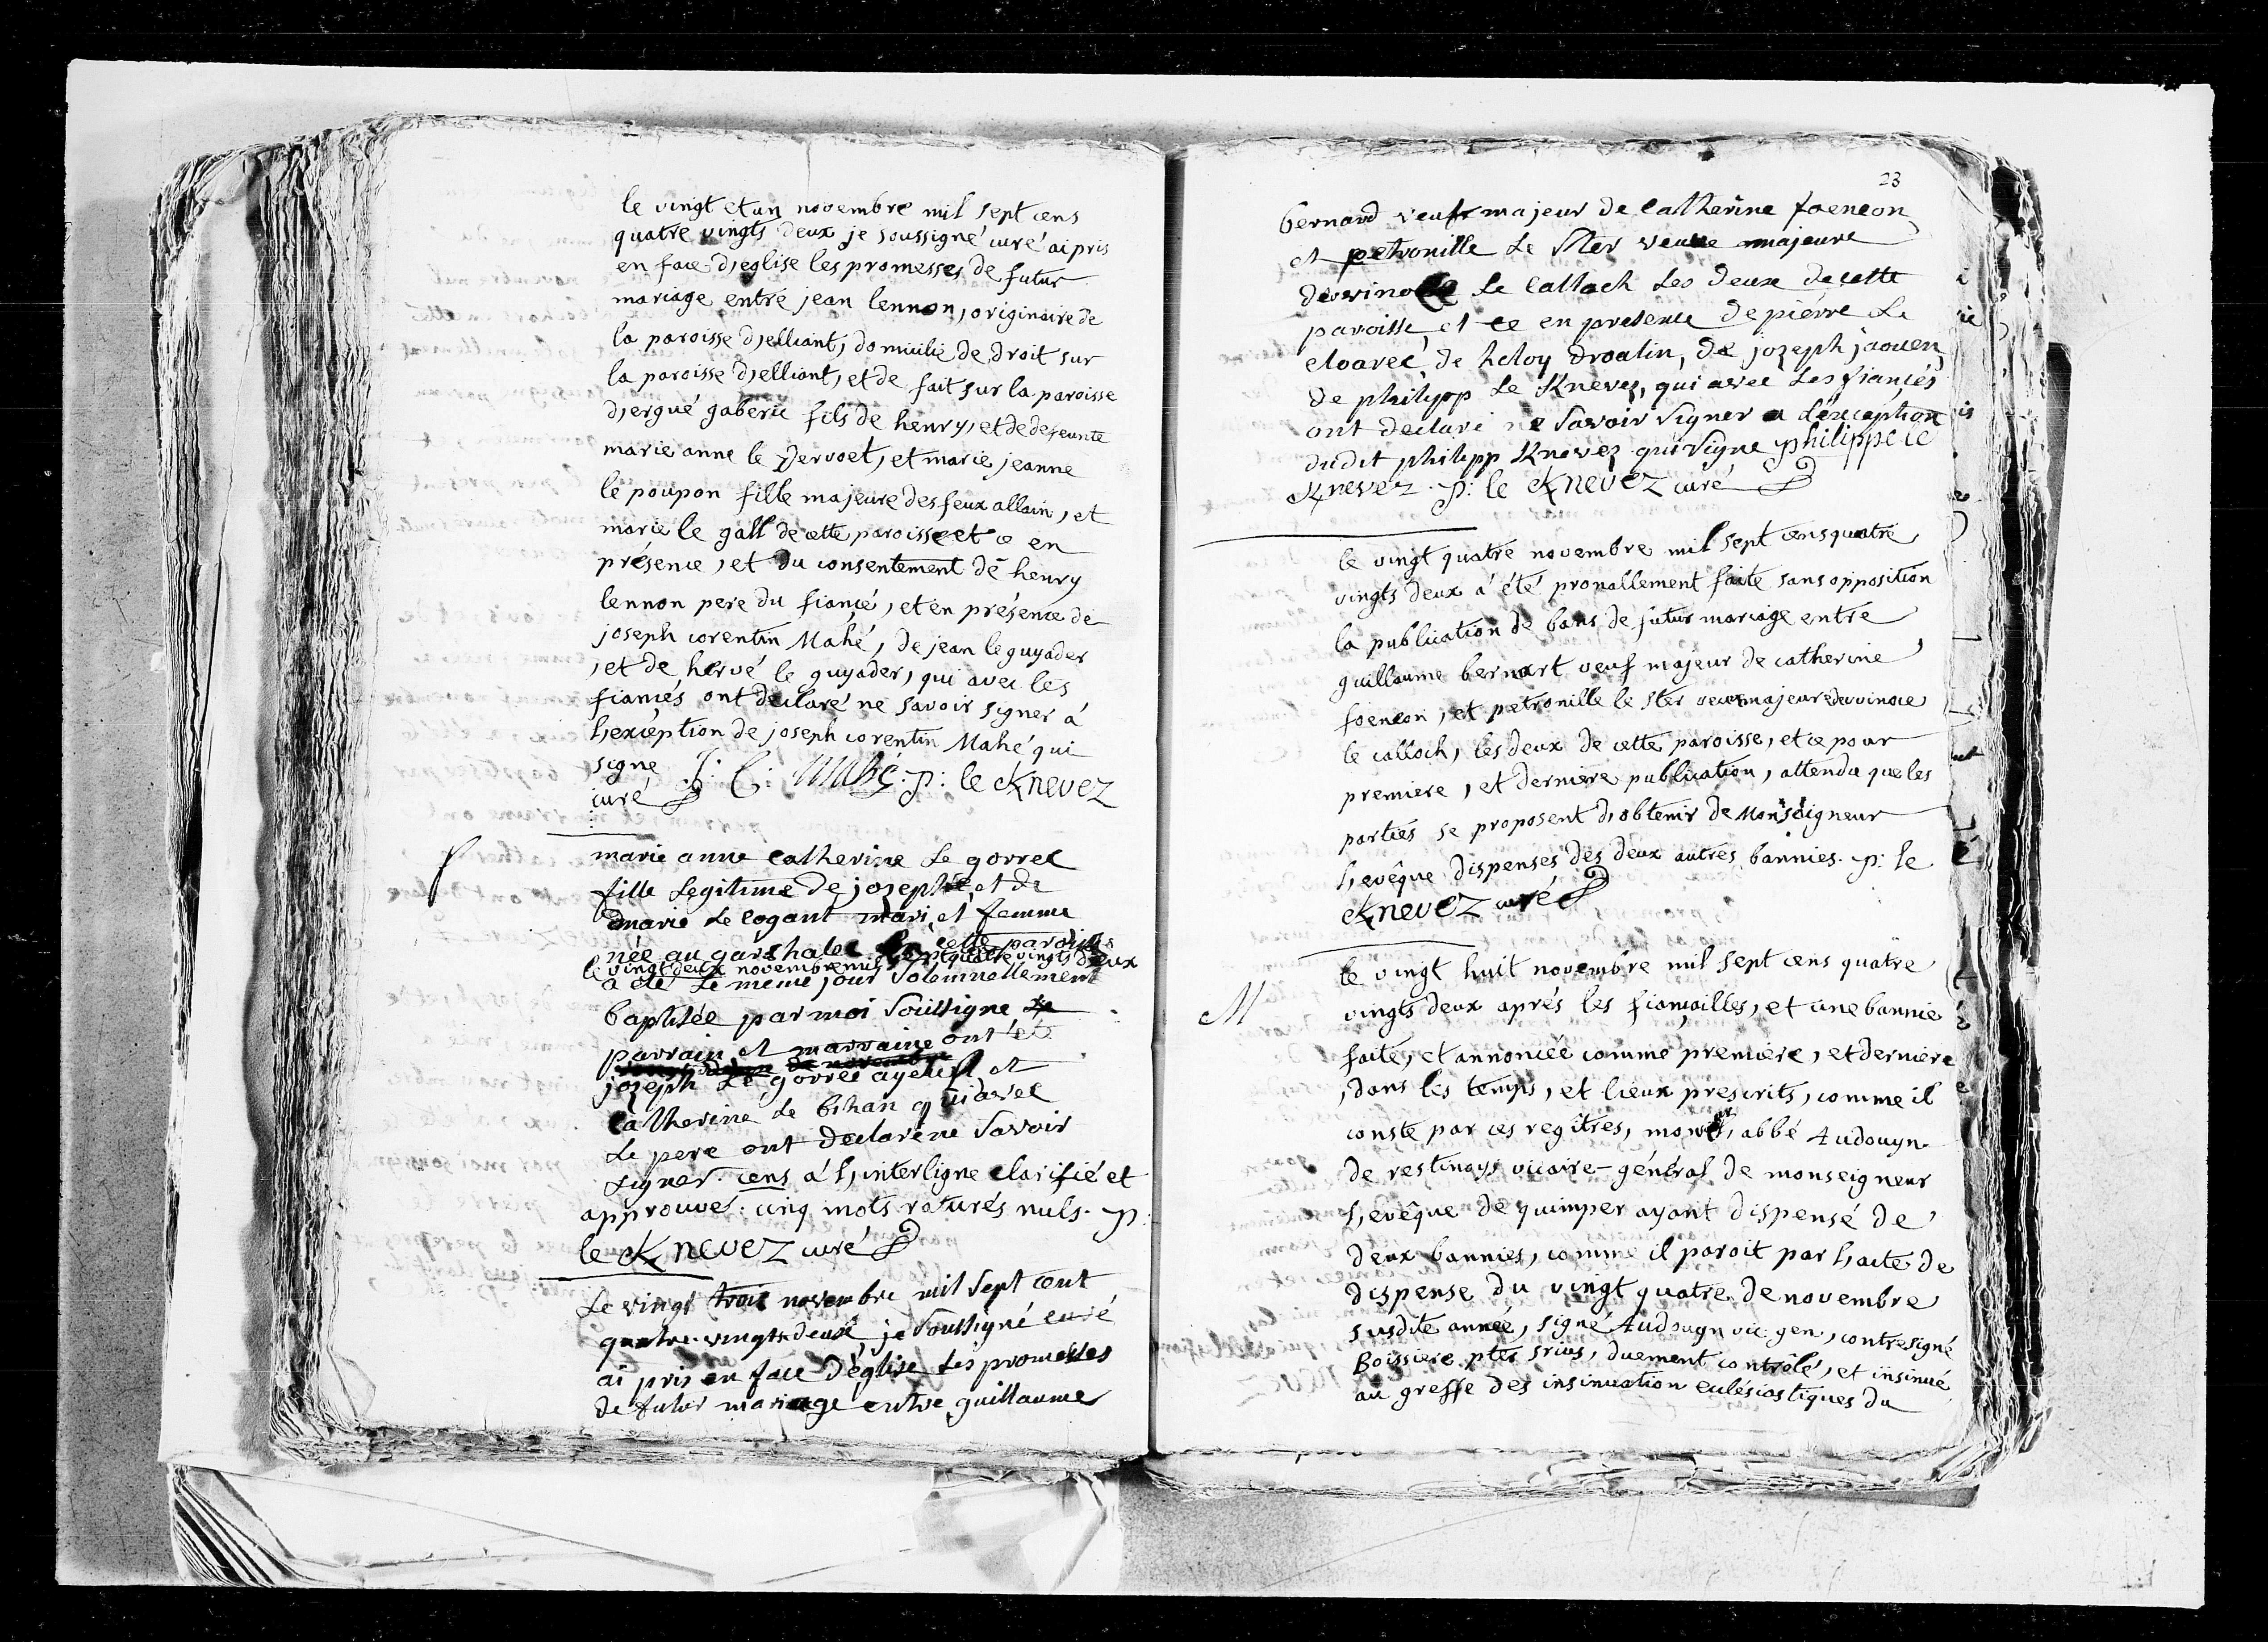 le vingt et un novembre mil sept cens
quatre vingts deux je soussigné curé ai pris
en face d,eglise les promesses de futur
mariage entre jean lennon, originaire de
la paroisse d,elliant, domicilié de droit sur
la paroisse d,elliant, et de fait sur la paroisse
d,ergué gaberic fils de henry, et de defeunte
marie anne le dervoet, et marie jeanne
le poupon fille majeure des feux allain, et
marie le gall de cette paroisse et ce en
présence, et du consentement de henry
lennon pere du fiancé, et en présence de
joseph corentin Mahé, de jean le guyader
, et de hervé le guyader, qui avec les
fiancés ont declaré ne savoir signer á
l,exception de joseph corentin Mahé qui
signe J: C: Mahé. p: le Knevez
curé
marie anne catherine Le gorrec
fille Legitime de jozeph et de
marie Le cogant mari et femme
née au garshalec cette paroisse
le vingt deux novembre mil sept quatre vingts deux
a été Le meme jour Solemnellement
baptisée par moi Soussigne
parrain et marraine ont été
jozeph Le gorrec ayeul et
catherine Le bihan qui avec
Le pere ont declaré ne Savoir
Signer. cens á l,interligne clarifié et
approuvé. cinq mots raturés nuls. p:
le Knevez curé
Le vingt trois novembre mil Sept cent
quatre-vingts deux je Soussigné curé
ai pris en face d'église Les promesses
de futur mariage entre guillaume
23
bernard veuf majeur de catherine foeneon
et petronille Le Ster veuve majeure
de vinoce Le Calloch Les deux de cette
paroisse, et ce en presence de pierre Le
cloarec, de heloy droalin, de jozeph jaouen,
de philipp Le Knevez, qui avec Les fiancés
ont declaré ne Savoir Signer a L'exception
dudit philipp Knevez qui Signe philippe le
Knevez. p: le Knevez curé
le vingt quatre novembre mil sept cens quatre
vingts deux á été pronallement faite sans opposition
la publication de bans de futur mariage entre
guillaume bernart veuf majeur de catherine
foeneon, et petronille le Ster veuve majeure de vinoce
le calloch, les deux de cette paroisse, et ce pour
premiere, et derniere publication, attendu que les
parties se proposent d,obtenir de Monseigneur
l,evêque dispenses des deux autres bannies. p: le
Knevez curé
M
le vingt huit novembre mil sept cens quatre
vingts deux aprés les fiancailles, et une bannie
faite, et annoncée comme premiere, et derniere
, dans les temps, et lieux prescrits, comme il
conste par ces regîtres, abbé Audouyn
de restinoys vicaire-général de monseigneur
l,evêque de quimper ayant dispensé de
deux bannies, comme il paroit par l,acte de
dispense du vingt quatre de novembre
susdite année, signé Audouyn vic gen, contresigné
Boissiere ptre srius, duement contrôlé, et insinué
au greffe des insinuation eclésiastiques du